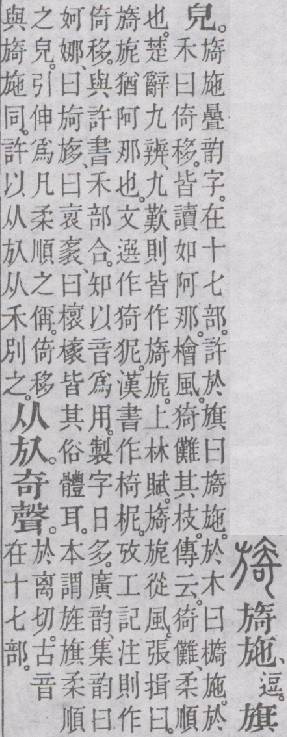 旖施、逗。旗
皃。
旖施曡韵字。在十七部。許於旗曰旖施。於木曰檹施。於
禾曰倚移。皆讀如阿那。檜風。猗儺其枝。傳云。猗儺、柔順
也。楚辭九辨、九歎則皆作旖旎。上林賦。旖旎從風。張揖曰。
旖旎猶阿那也。文選作猗狔。漢書作椅柅。攷工記注則作
倚移。與許書禾部合。知以音爲用。製字日多。廣韵、集韵曰
妸娜、曰皆其俗體耳。本謂旌旗柔順
之皃。引伸爲凡柔順之偁。倚移
與旖施同。許以从㫃从禾別之。
从㫃。奇聲。
於離切。古音
在十七部。